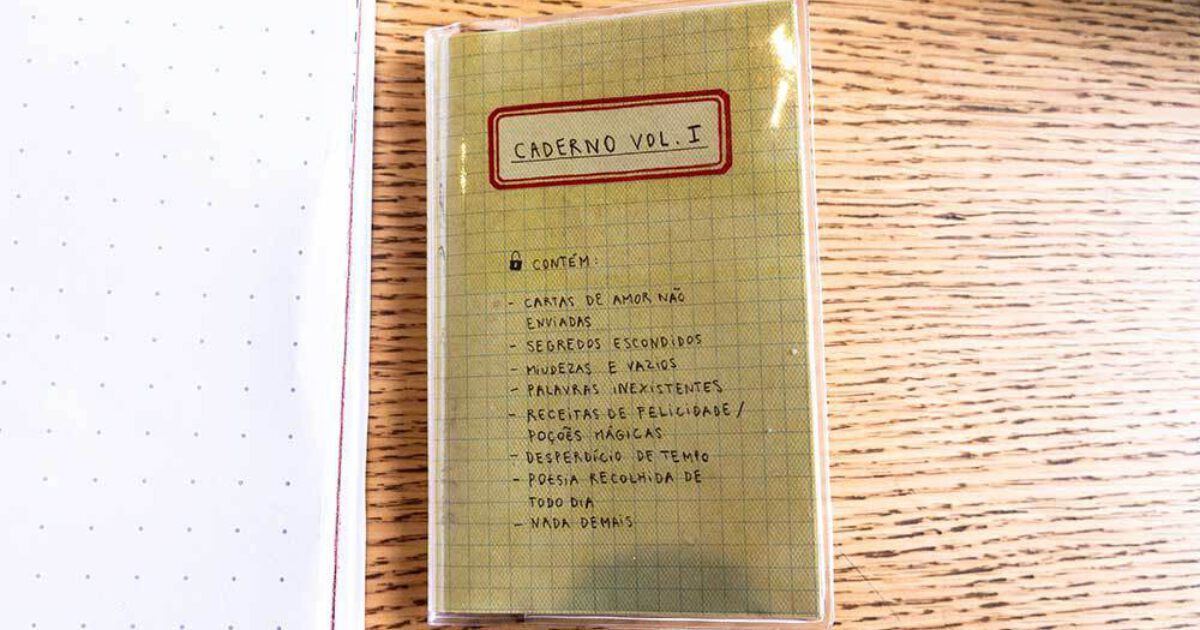 CADERNO VOL. I
CONTÉM:
- CARTAS DE AMOR NÃO
ENVIADAS
- SEGREDOS ESCONDIDOS
- MIUDEZAS E VAZIOS
- PALAVRAS INEXISTENTES
- RECEITAS DE FELICIDADE /
POÇÕES MÁGICAS
- DESPERDÍCIO DE TEMPO
- POESIA RECOLHIDA DE
TODO DIA
- NADA DEMAIS